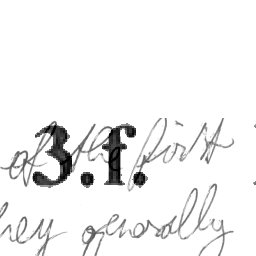 of the first
3.f.
hey generally